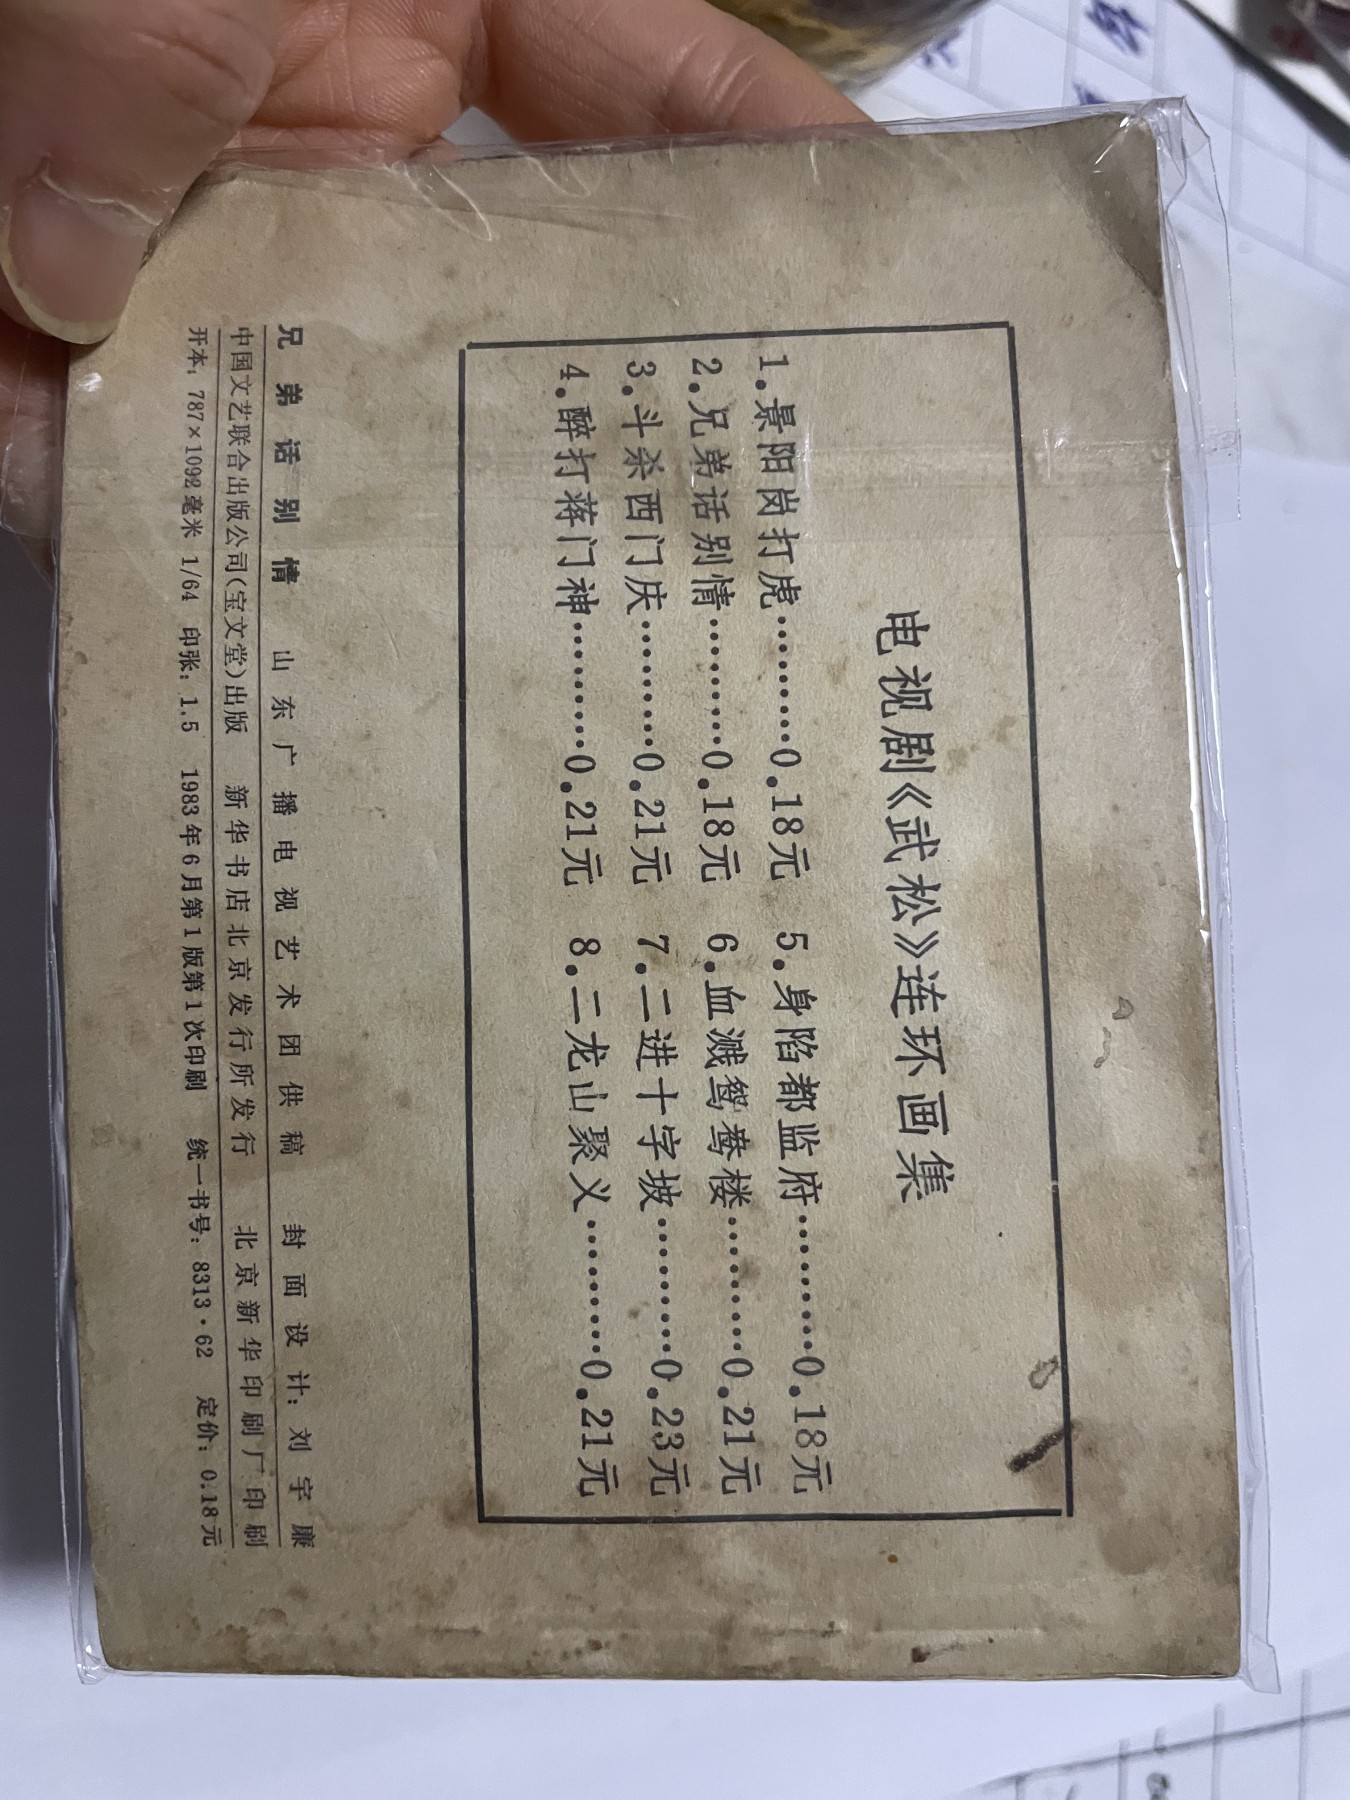 电视剧《武松》连环画集
1.景阳岗打虎………0.18元 5.身陷都监府………0.18元
2.兄弟话别情………0.18元 6.血溅鸳鸯楼………0.21元
3.斗杀西门庆………0.21元 7.二进十字坡………0.23元
4.醉打蒋门神………0.21元 8.二龙山聚义………0.21元
兄弟话别情 山东广播电视艺术团供稿 封面设计:刘宇廉
中国文艺联合出版公司(宝文堂)出版 新华书店北京发行所发行 北京新华印刷厂印刷
开本:787×1092毫米 1/64 印张:1.5 1983年6月第1版第1次印刷 统一书号:8313·62 定价:0.18元